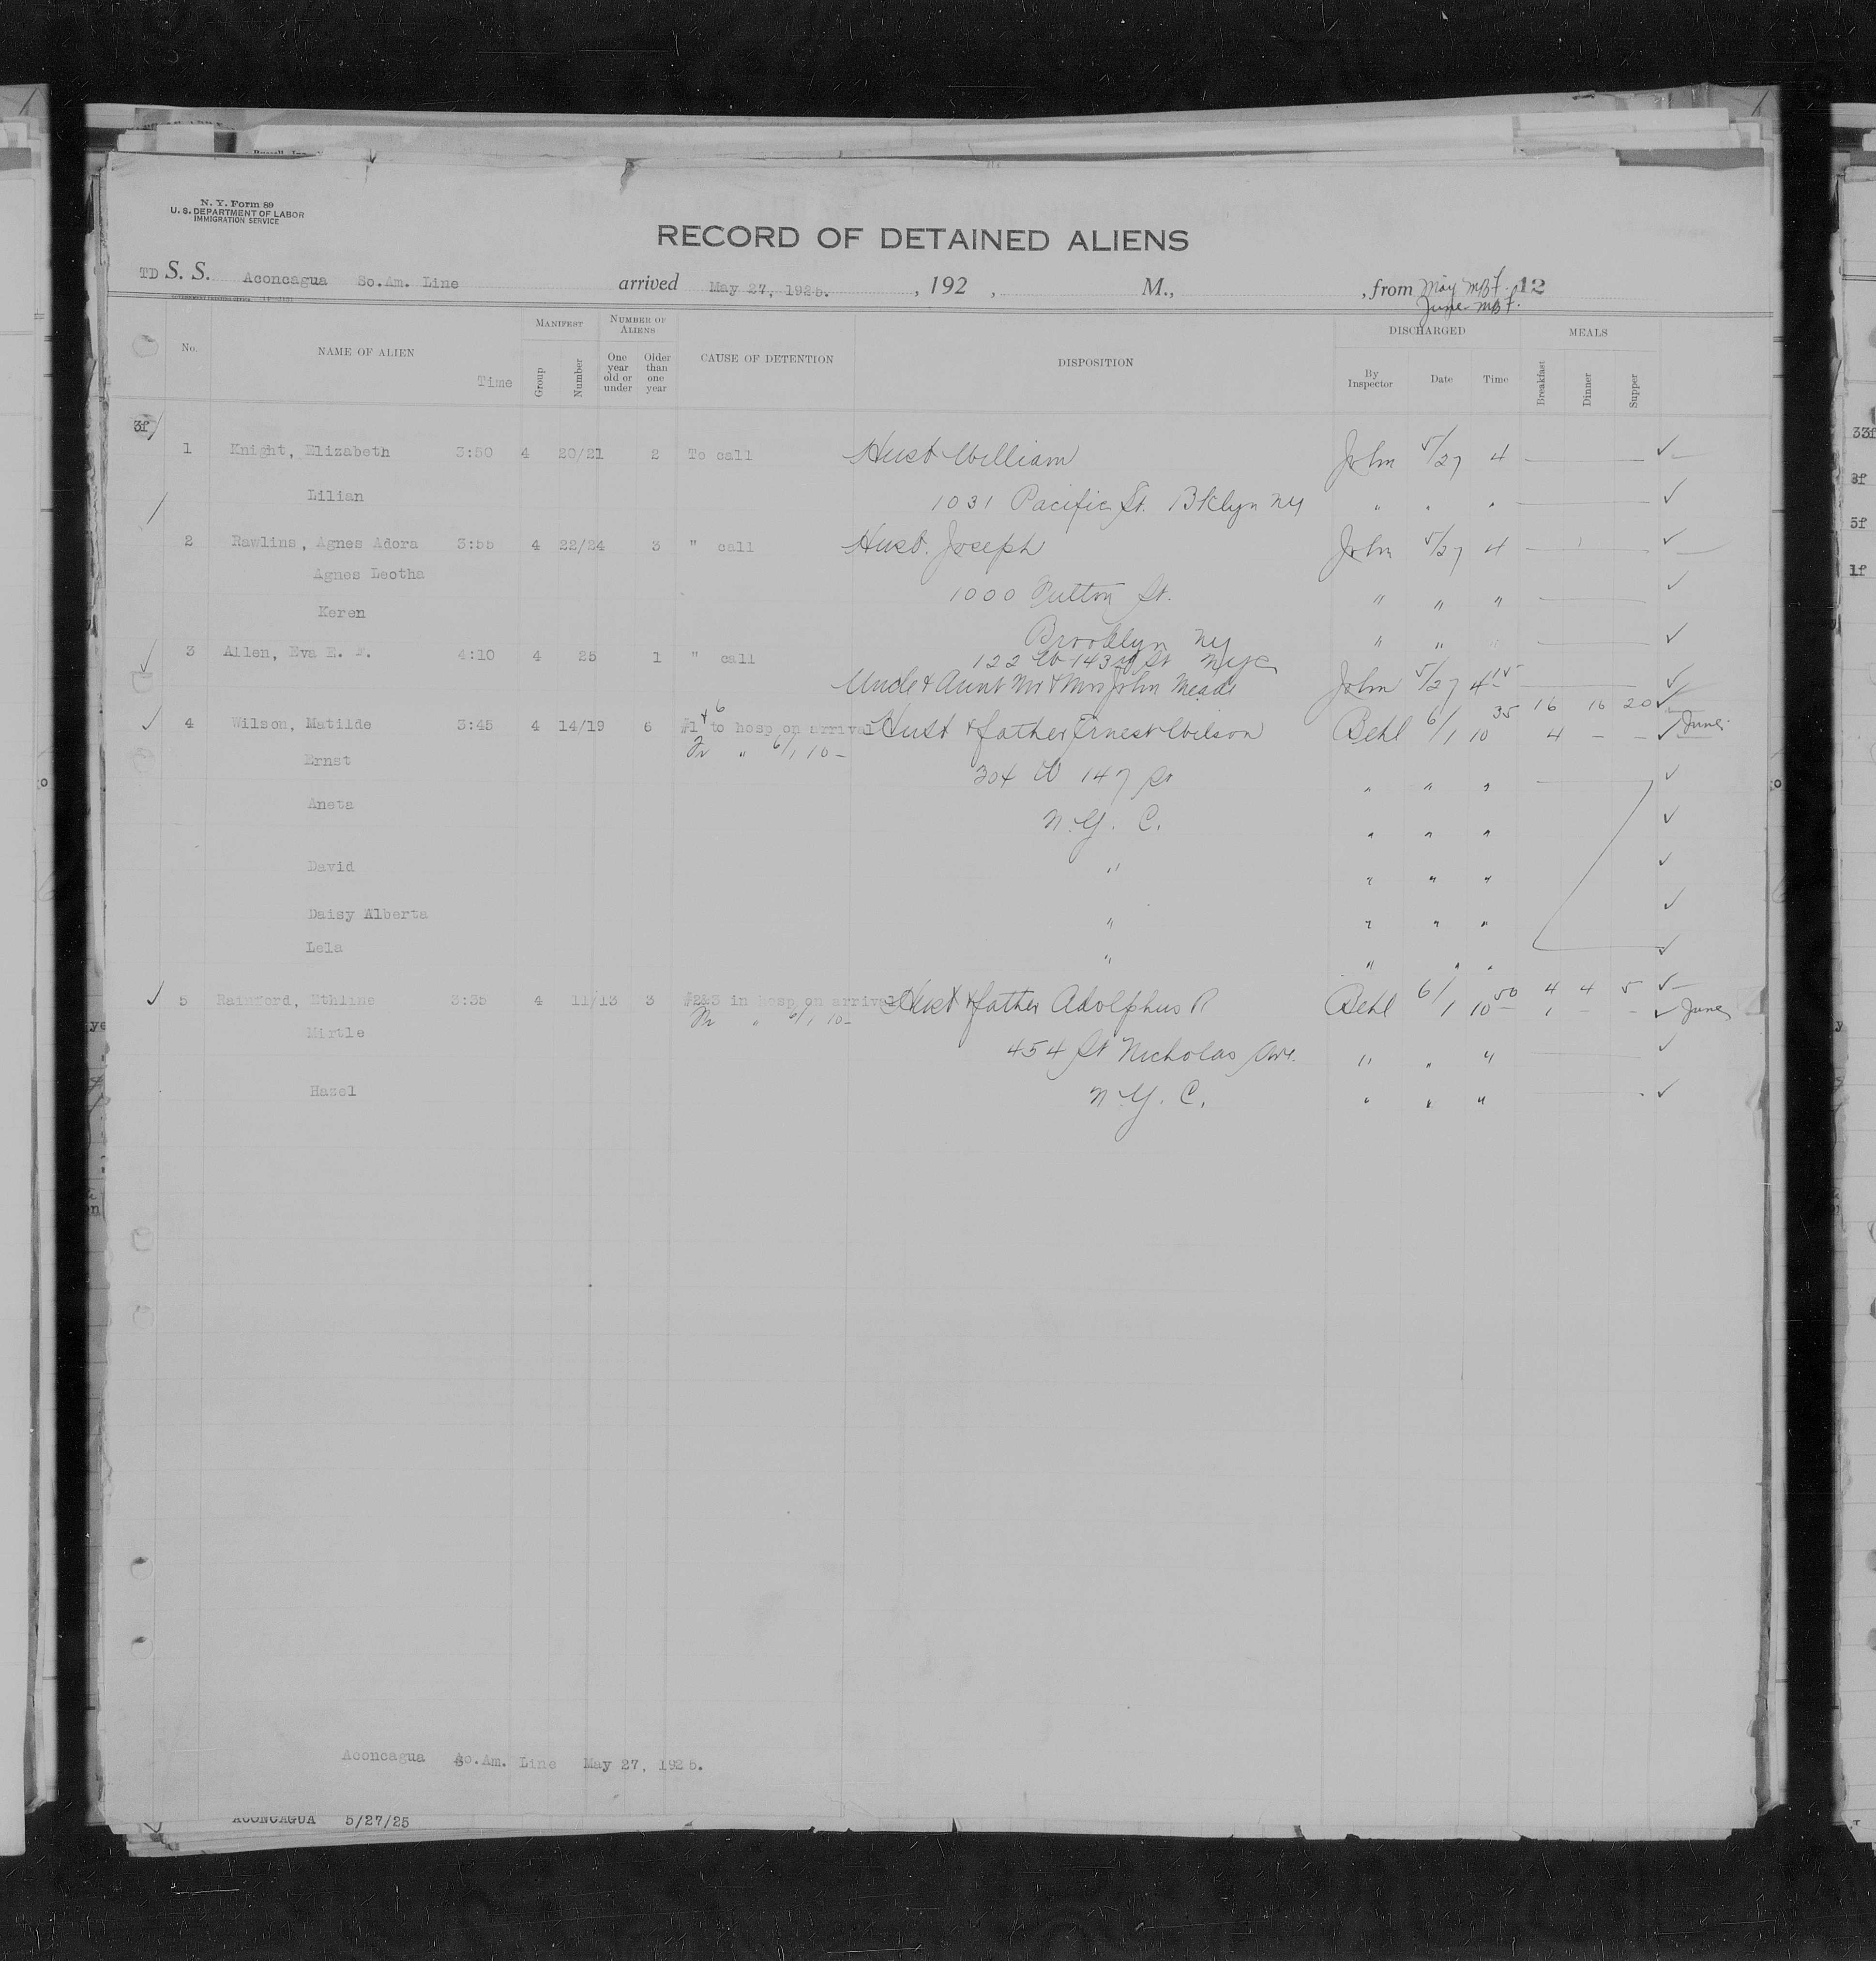 N. Y. Form 89
U. S. DEPARTMENT OF LABOR
IMMIGRATION SERVICE
RECORD OF DETAINED ALIENS
TD S. S. Aconcagua So.Am. Line arrived May 27, 1925. , 192 , M., , from May MBF. 12
June MBF.
No. NAME OF ALIEN Time MANIFEST Group Number NUMBER OF ALIENS One year old or under Older than one year CAUSE OF DETENTION DISPOSITION DISCHARGED By Inspector Date Time MEALS Breakfast Dinner Supper
3f
1 Knight, Elizabeth 3:50 4 20/21 2 To call Husb William John 5/27 4 ✓
Lilian 1031 Pacific St. Bklyn NY " " " ✓
2 Rawlins, Agnes Adora 3:55 4 22/24 3 " call Husb. Joseph John 5/27 4 ✓
Agnes Leotha 1000 Fulton St. " " " ✓
Keren Brooklyn NY " " " ✓
3 Allen, Eva E. 4:10 4 25 1 " call 122 W 143rd St NYC
Uncle & Aunt Mr & Mrs John Meade John 5/27 4 15 ✓
4 Wilson, Matilde 3:45 4 14/19 6 #1 & 6 to hosp on arrival Husb & father Ernest Wilson Behl 6/1 10 35 16 16 20 ✓
Fr " 6/1 10 – 4 – – ✓ June
Ernst 304 W 147 St " " " ✓
Aneta N.Y. C. " " " ✓
David " " " " ✓
Daisy Alberta " " " " ✓
Lela " " " " ✓
5 Rainford, Ethline 3:35 4 11/13 3 #2&3 in hosp on arrival Husb & father Adolphus R Behl 6/1 10 50 4 4 5 ✓
Fr " 6/1 10 – 1 – – ✓ June
Mirtle 454 St Nicholas Ave. " " " ✓
Hazel N.Y. C. " " " ✓
Aconcagua So.Am. Line May 27, 1925.
ACONCAGUA 5/27/25
33f
3f
5f
1f